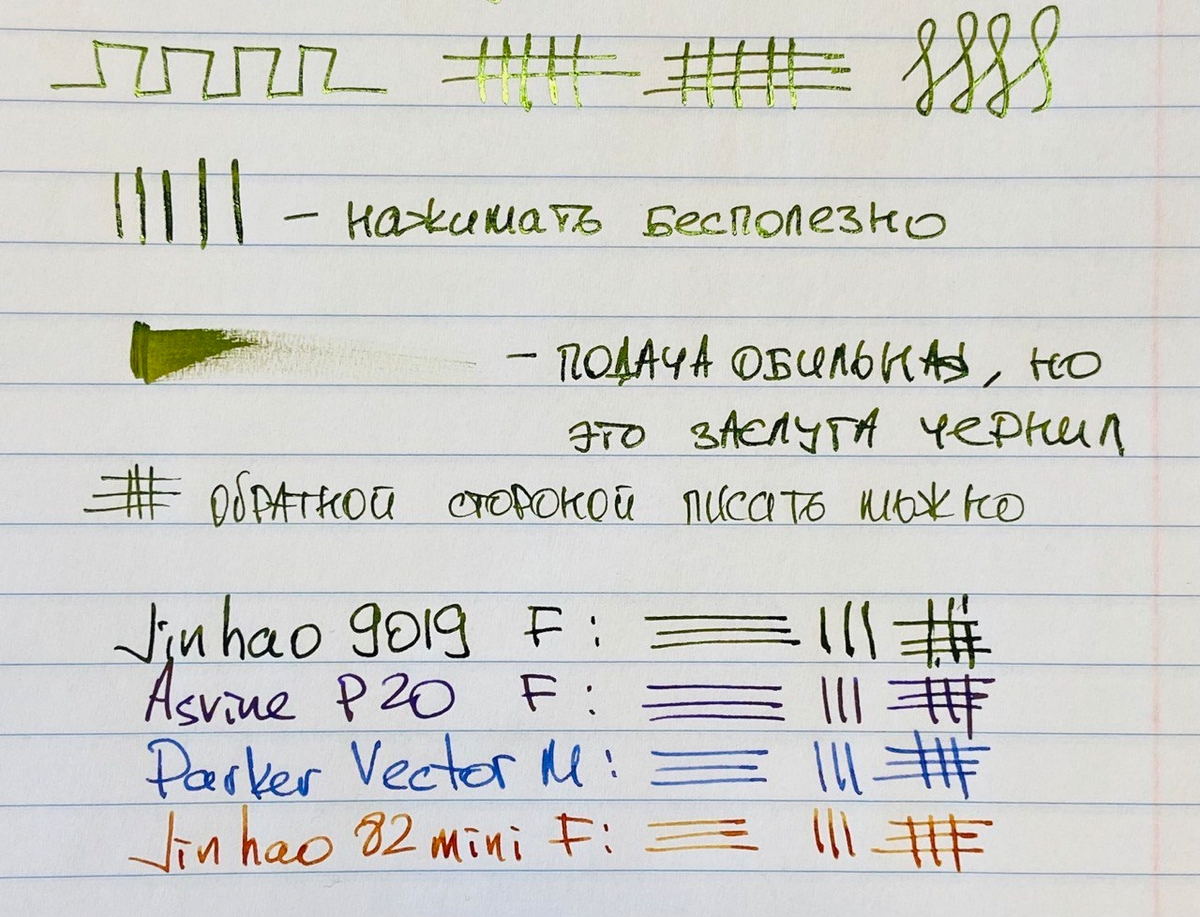 – нажимать бесполезно
– ПОДАЧА ОБИЛЬНАЯ, но
это ЗАСЛУГА ЧЕРНИЛ
ОБРАТНОЙ СТОРОНОЙ ПИСАТЬ МОЖНО
Jinhao 9019 F:
Asvine P20 F:
Parker Vector M:
Jinhao 82 mini F: